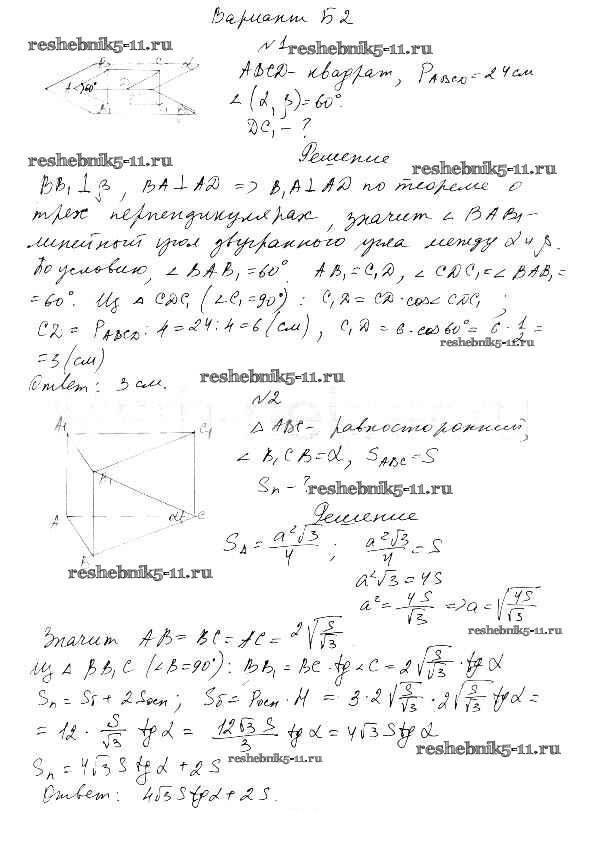 Вариант Б2
reshebnik5-11.ru
№1 reshebnik5-11.ru
ABCD - квадрат, P_ABCD = 24 см
∠(α, β) = 60°.
DC₁ - ?
A 60°
Решение
reshebnik5-11.ru
reshebnik5-11.ru
BB₁ ⊥ β, BA ⊥ AD => B₁A ⊥ AD по теореме о
трех перпендикулярах, значит ∠BAB₁ -
линейный угол двугранного угла между α и β.
По условию, ∠BAB₁ = 60°. AB₁ = C₁D, ∠CDC₁ = ∠BAB₁ =
= 60°. Из △CDC₁ (∠C₁ = 90°): C₁D = CD · cos∠CDC₁;
CD = P_ABCD : 4 = 24 : 4 = 6 (см), C₁D = 6 · cos60° = 6 · 1/2 =
reshebnik5-11.ru
= 3 (см)
Ответ: 3 см.
reshebnik5-11.ru
№2
A₁ C₁
△ABC - равносторонний,
∠B₁CB = α, S_ABC = S
Sп - ?
reshebnik5-11.ru
B₁
A α C
B
Решение
S△ = a²√3/4; a²√3/4 = S
reshebnik5-11.ru
a²√3 = 4S
a² = 4S/√3 => a = √(4S/√3)
reshebnik5-11.ru
Значит AB = BC = AC = 2√(S/√3)
Из △BB₁C (∠B = 90°): BB₁ = BC · tg∠C = 2√(S/√3) · tgα
Sп = Sб + 2Sосн; Sб = Pосн · H = 3 · 2√(S/√3) · 2√(S/√3) tgα =
= 12 · S/√3 tgα = 12√3 S/3 tgα = 4√3 S tgα
reshebnik5-11.ru
reshebnik5-11.ru
Sп = 4√3 S tgα + 2S
Ответ: 4√3 S tgα + 2S.